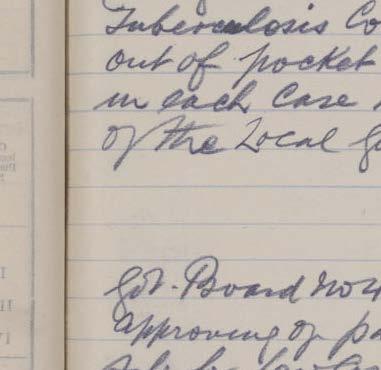 Tuberculosis Co
out of pocket
in each case
of the Local G
Gov. Board No 4
approving of pa